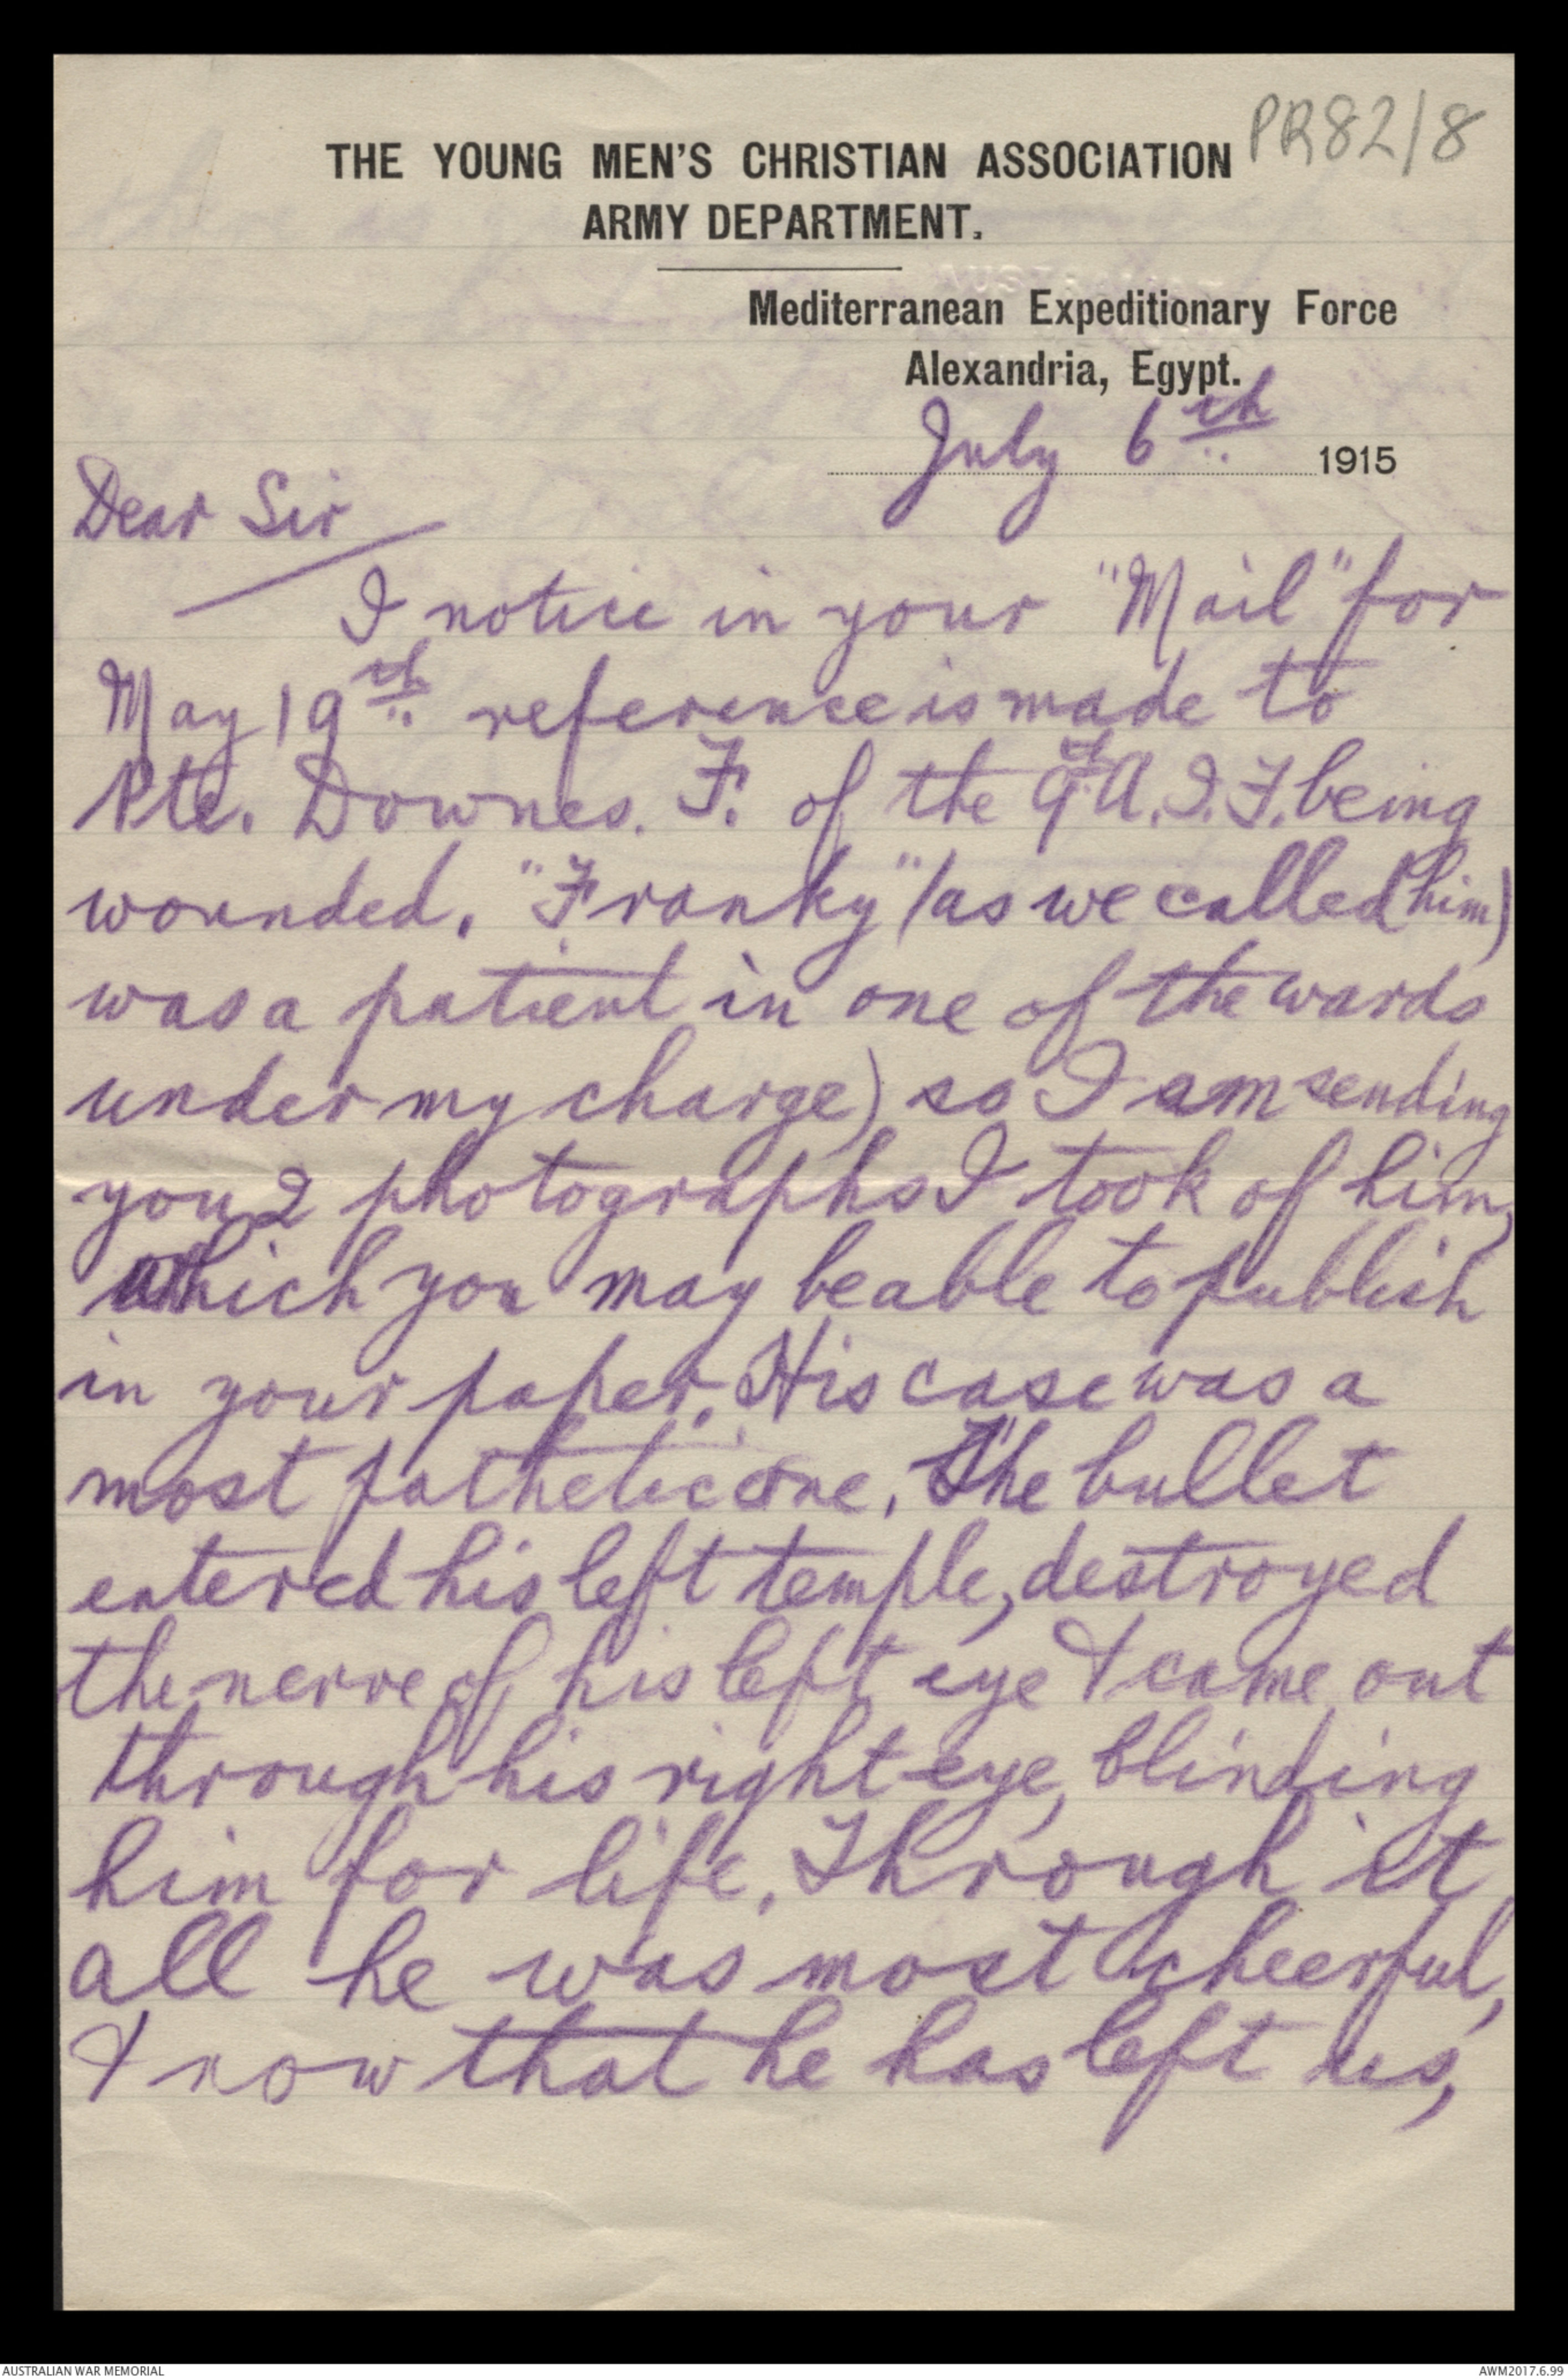 PR82/8
THE YOUNG MEN'S CHRISTIAN ASSOCIATION
ARMY DEPARTMENT.
Mediterranean Expeditionary Force
Alexandria, Egypt.
July 6th 1915
Dear Sir
I notice in your "Mail" for
May 19th reference is made to
Pte. Downes. F. of the 9th A.I.F. being
wounded. "Franky" (as we called him)
was a patient in one of the wards
under my charge) so I am sending
you 2 photographs I took of him,
which you may be able to publish
in your paper. His case was a
most pathetic one. The bullet
entered his left temple, destroyed
the nerve of his left eye & came out
through his right eye, blinding
him for life. Through it
all he was most cheerful,
& now that he has left us,
AUSTRALIAN WAR MEMORIAL
AWM2017.6.99